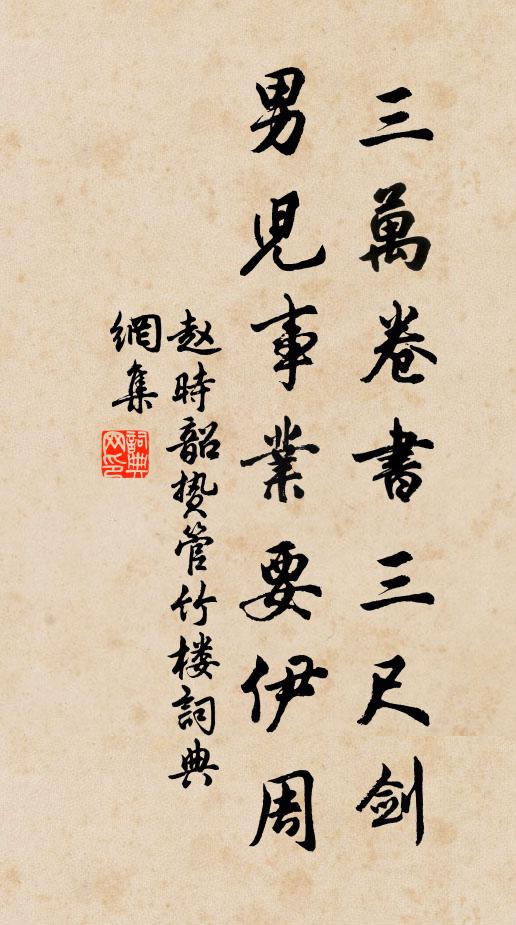 三萬卷書三尺剑
男児事業要伊周
赵時韶贽管竹楼詞典
網集
詞典网印